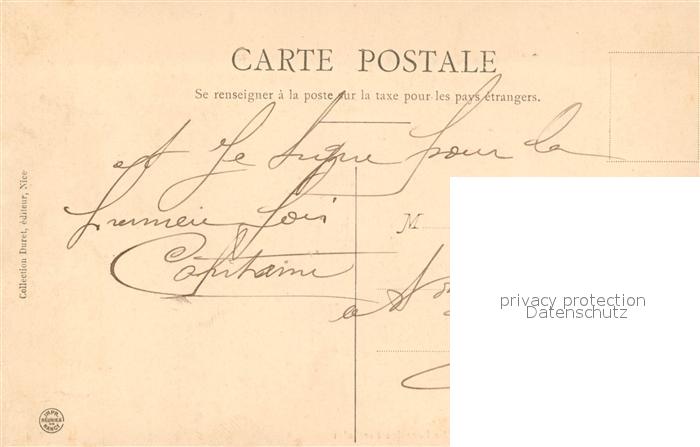 CARTE POSTALE
Se renseigner à la poste sur la taxe pour les pays étrangers.
et Je signe pour la
première fois
Capitaine
M
Collection Duret, éditeur, Nice
privacy protection
Datenschutz
IMPR.
RÉUNIES
DE
NANCY